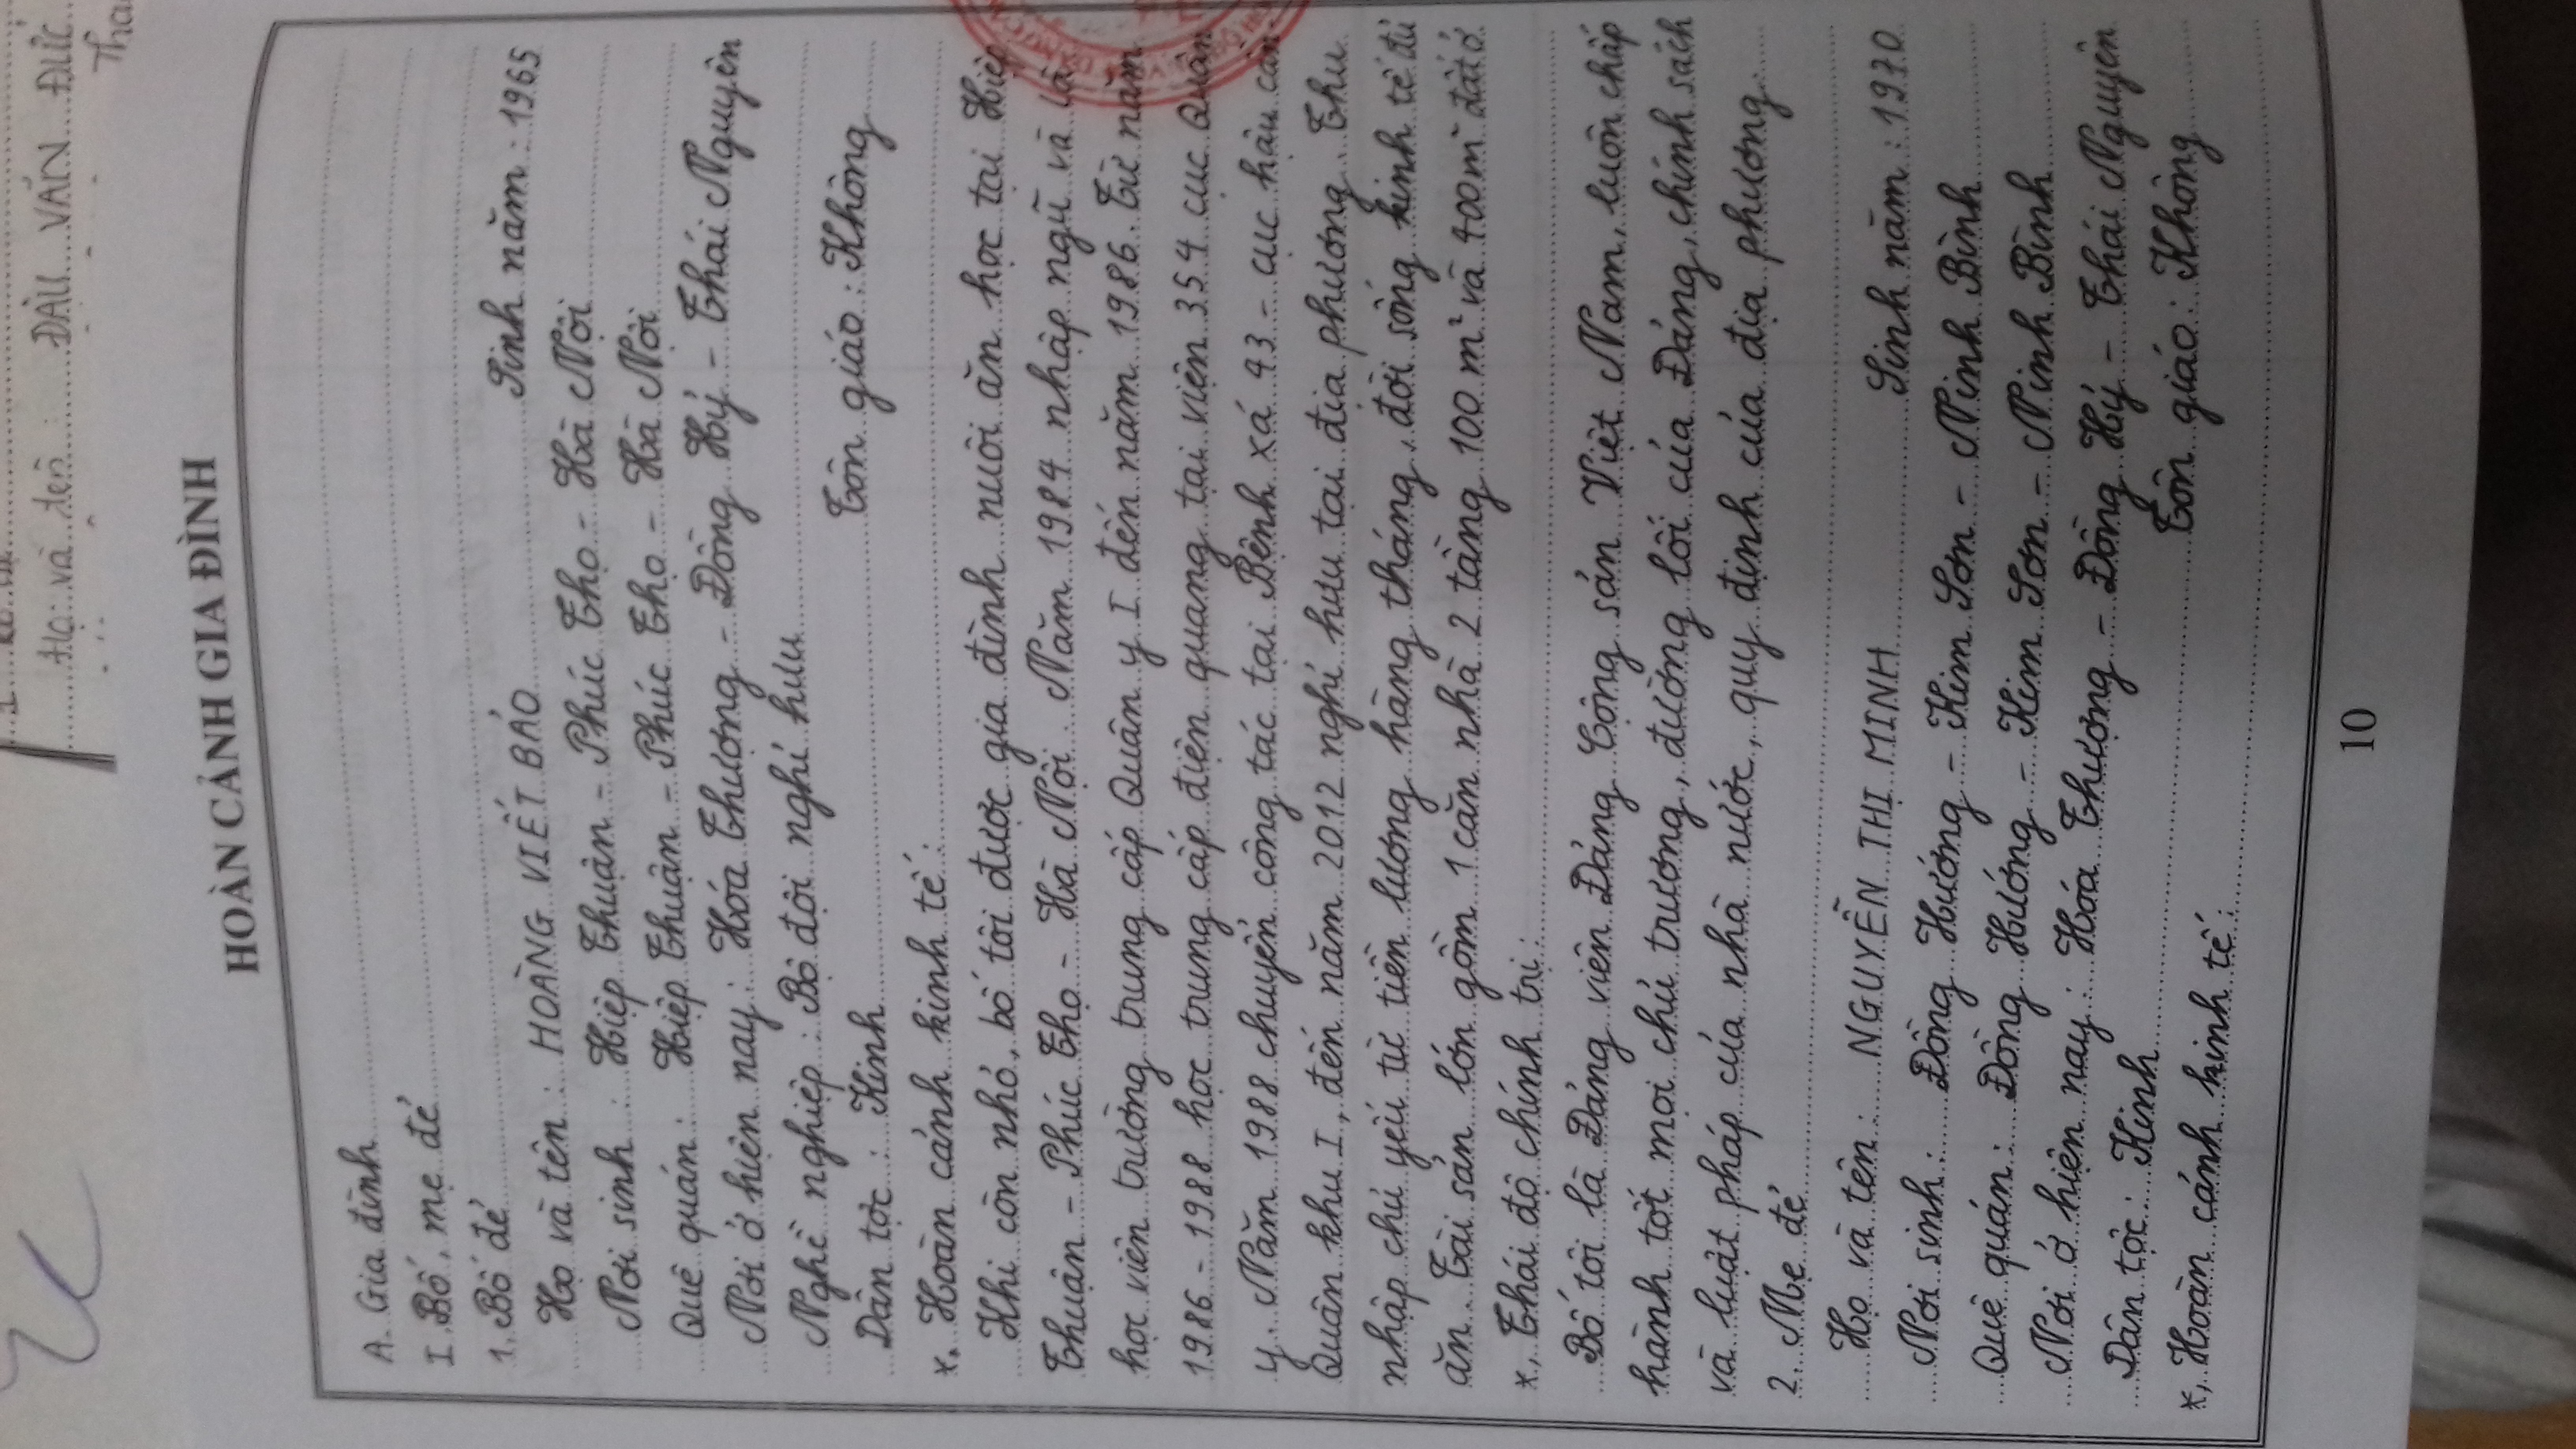 Họ và tên : ĐẬU VĂN ĐỨC
HOÀN CẢNH GIA ĐÌNH
A. Gia đình
I. Bố, mẹ đẻ
1. Bố đẻ
Họ và tên : HOÀNG VIẾT BẢO Sinh năm : 1965
Nơi sinh : Hiệp Thuận - Phúc Thọ - Hà Nội
Quê quán : Hiệp Thuận - Phúc Thọ - Hà Nội
Nơi ở hiện nay : Hóa Thượng - Đồng Hỷ - Thái Nguyên
Nghề nghiệp : Bộ đội nghỉ hưu
Dân tộc : Kinh Tôn giáo : Không
*. Hoàn cảnh kinh tế :
Khi còn nhỏ, bố tôi được gia đình nuôi ăn học tại Hiệp
Thuận - Phúc Thọ - Hà Nội. Năm 1984 nhập ngũ và là
học viên trường trung cấp Quân y I đến năm 1986. Từ năm
1986 - 1988 học trung cấp điện quang tại viện 354 cục Quân
y. Năm 1988 chuyển công tác tại Bệnh xá 43 - cục hậu cần
Quân khu I, đến năm 2012 nghỉ hưu tại địa phương. Thu
nhập chủ yếu từ tiền lương hàng tháng, đời sống kinh tế đủ
ăn. Tài sản lớn gồm 1 căn nhà 2 tầng 100 m² và 400m² đất ở.
*, Thái độ chính trị :
Bố tôi là Đảng viên Đảng Cộng sản Việt Nam, luôn chấp
hành tốt mọi chủ trương, đường lối của Đảng, chính sách
và luật pháp của nhà nước, quy định của địa phương.
2. Mẹ đẻ
Họ và tên : NGUYỄN THỊ MINH Sinh năm : 1970
Nơi sinh : Đồng Hướng - Kim Sơn - Ninh Bình
Quê quán : Đồng Hướng - Kim Sơn - Ninh Bình
Nơi ở hiện nay : Hóa Thượng - Đồng Hỷ - Thái Nguyên
Dân tộc : Kinh Tôn giáo : Không
*, Hoàn cảnh kinh tế :
10